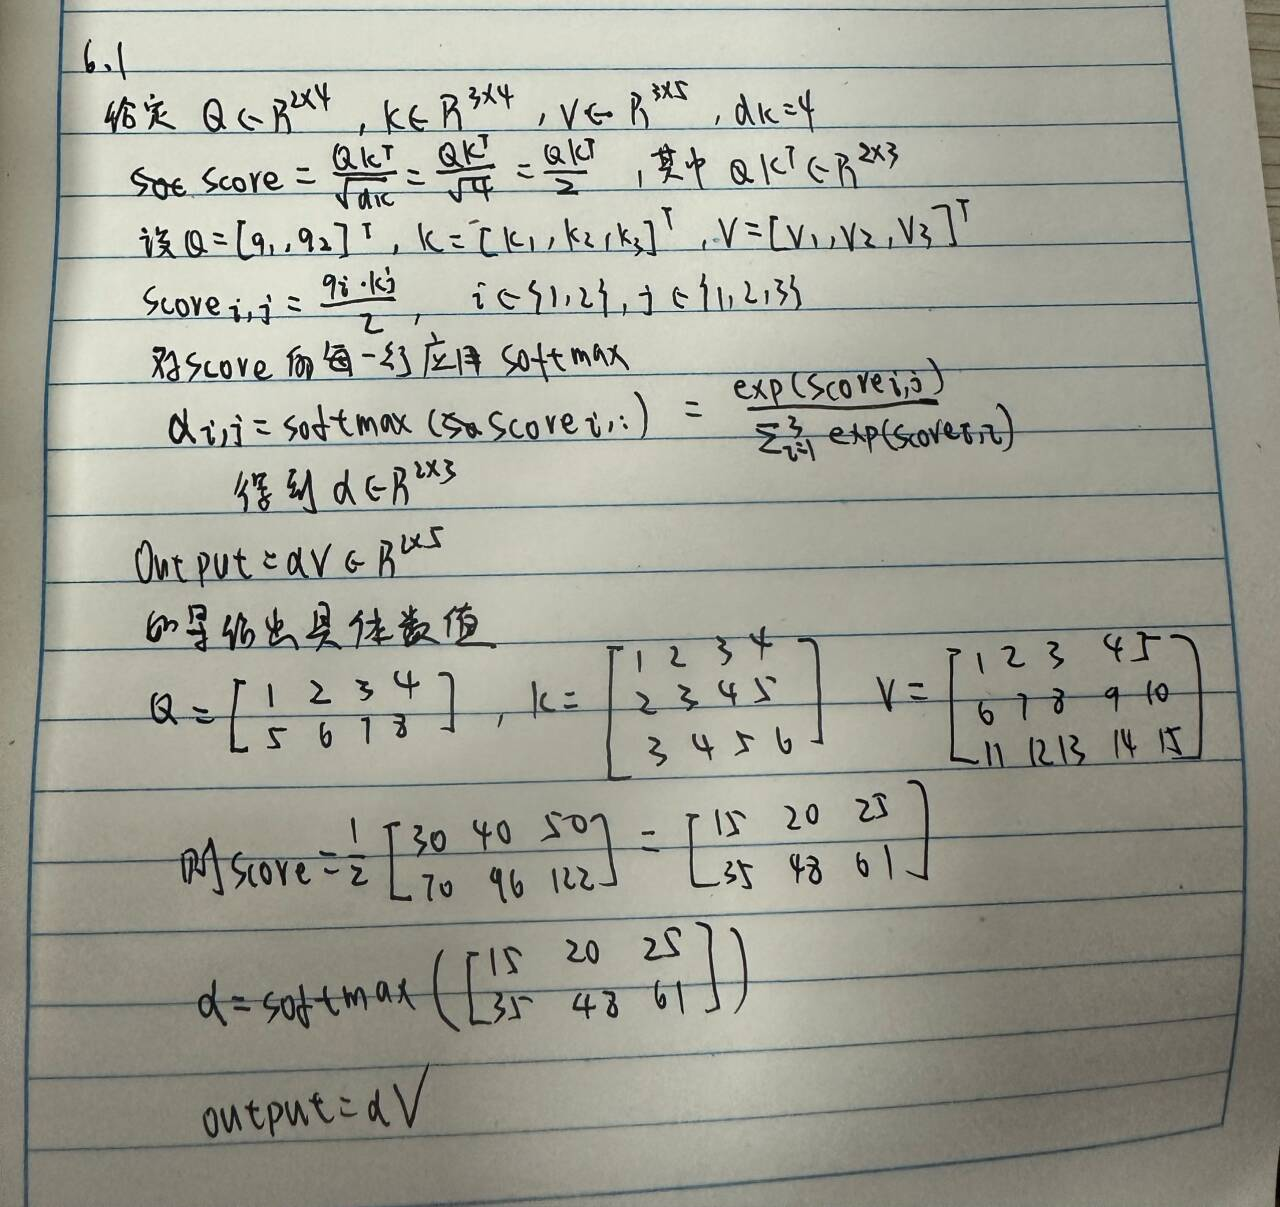 6.1
给定 Q∈R^{2×4}, K∈R^{3×4}, V∈R^{3×5}, dk=4
score = QK^T/√dk = QK^T/√4 = QK^T/2, 其中 QK^T∈R^{2×3}
设Q=[q1,q2]^T, K=[K1,K2,K3]^T, V=[V1,V2,V3]^T
score i,j = qi·kj/2, i∈{1,2}, j∈{1,2,3}
对score的每一行应用softmax
αi,j = softmax (score i,:) = exp(score i,j) / Σ_{i=1}^{3} exp(score i,i)
得到 α∈R^{2×3}
Output=αV∈R^{2×5}
如果给出具体数值
Q = [1 2 3 4; 5 6 7 8], K = [1 2 3 4; 2 3 4 5; 3 4 5 6] V = [1 2 3 4 5; 6 7 8 9 10; 11 12 13 14 15]
则score = 1/2 [30 40 50; 70 96 122] = [15 20 25; 35 48 61]
α=softmax([15 20 25; 35 48 61])
output=αV